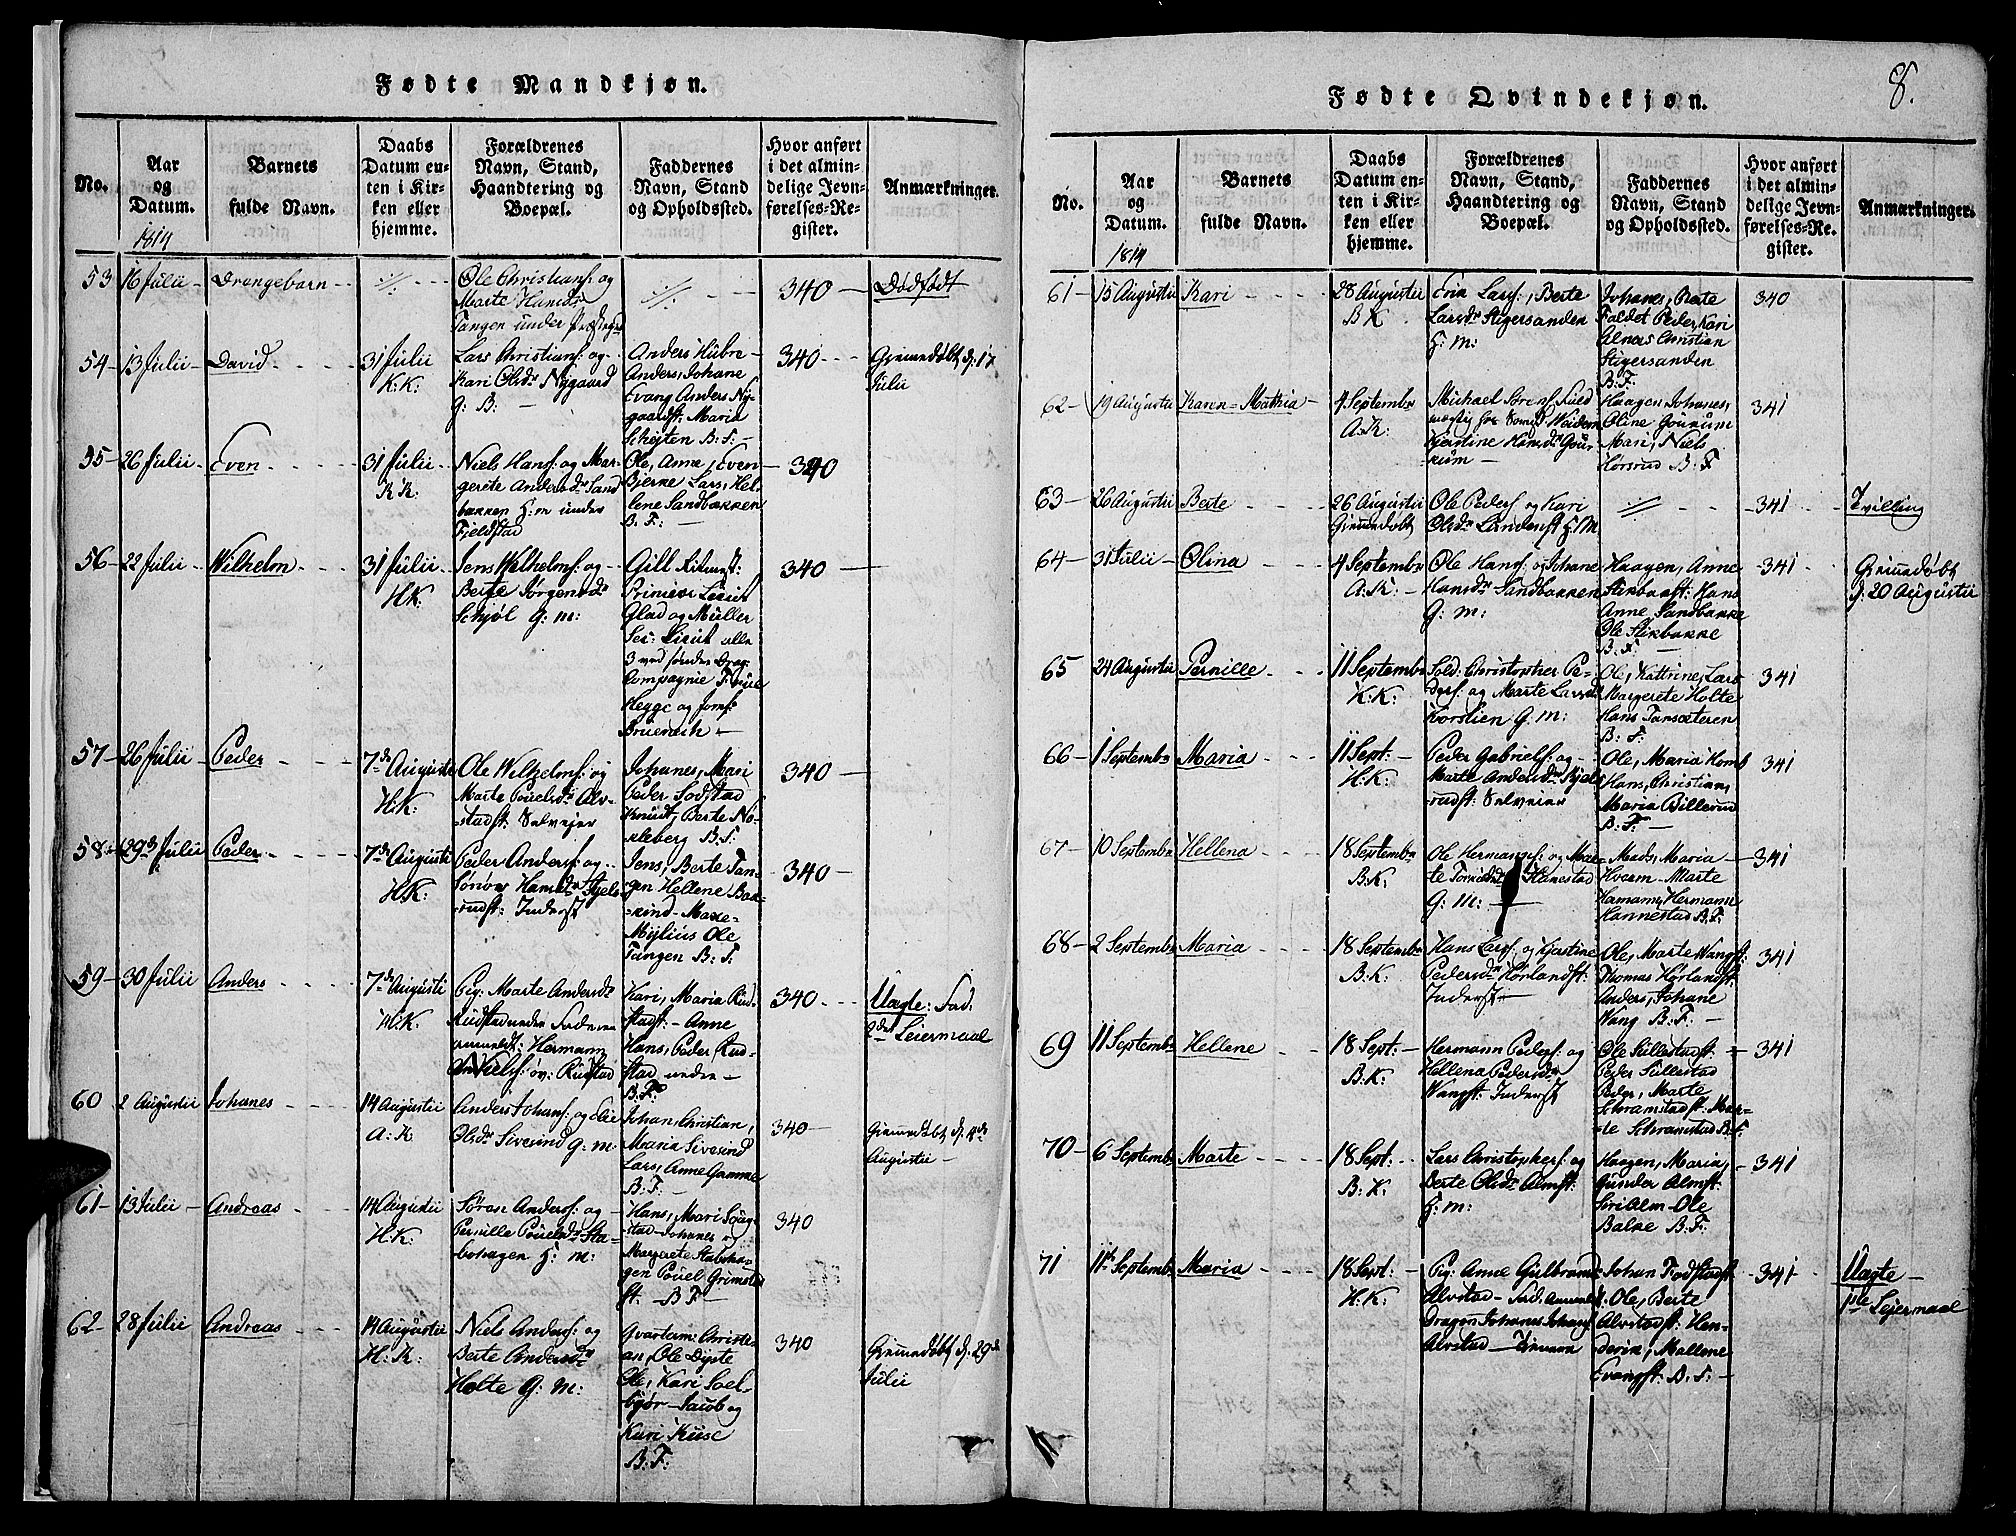 Fødte Mandkjøn.
No.
Aar
og
Datum.
1814
Barnets
fulde Navn.
Daabs
Datum en-
ten i Kir-
ken eller
hjemme.
Forældrenes
Navn, Stand,
Haandtering og
Boepæl.
Faddernes
Navn, Stand
og Opholdssted.
Hvor anført
i det almin-
delige Jevn-
førelses-Re-
gister.
Anmærkninger.
53
16 Julii
Drengebarn
Ole Christians: og
Marte Hansdr
Tangen under
340
Dødfødt
54
13 Julii
David
31 Julii
K:K:
Lars Christians: og
Kari Olsdr Nygaard
G: B:
Anders Hubre
Anders, Johane
Evang Anders Ny-
gaardst: Maria
B: F:
340
Giemedøbt d: 17
Julii
55
26 Julii
Even
31 Julii
K:K:
Niels Hans: og Mar-
grete Andersdr Sand
bakken H:m under
Fjeldstad
Ole, Anne, Even
Bjerke Lars, Hel-
lene Sandbakken
B: F:
340
56
22 Julii
Wilhelm
31 Julii
H:K:
Jens Wilhelms: og
Berte Jørgensdr
Schjøl G: m:
Gill
Glad og Müller
Sec: Lieut alle
3 ved søndre Drag:
Compagnie Frue
Hegge og Jomf:
340
57
26 Julii
Peder
7de Augusti
H:K:
Ole Wilhelms: og
Marte Pouelsdr Alv-
stadst: Selveier
Johanes, Mari
Peder Sodstad
Knudt, Berte No-
kleberg B: F:
340
58
29d Julii
Peder
7de Augusti
H:K:
Peder Anders: og
Hansdr Kjels-
rudst: Inderst
Jens, Berte Tan-
gen Hellene Bak-
kind Maxe-
Mylius Ole
Tangen B: F:
340
59
30 Julii
Anders
7de Augusti
H:K:
Pig: Marte Andersdr
Rudstad
anmeldt: Hermann
Niels: ov: Rustad
Kari, Maria Rud-
stadst: Anne
Hans, Peder Rud-
stad nedre
B: F:
340
Uægte: Fad.
2det Leiermaal
60
2 Augustii
Johanes
14 Augustii
A:K
Anders Johans: og Elie
Olsdr Sivesind G: m:
Johan, Christian,
Maria Sivesind
Lars, Anne Gamme
B: F:
340
Giemedøbt d: 4de
Augustii
61
13 Julii
Andreas
14 Augustii
H:K:
Søran Anders: og
Pernille Pouelsdr Sta-
behagen H: m:
Hans, Mari Soug-
stad Johanes og
Margrete Stabeha-
gen Pouel Grimstad
st. B F
340
62
28 Julii
Andreas
14 Augustii
H:K:
Niels Anders: og
Berte Andersdr
Holte G: M:
Qvarterm: Christi-
an, Ole Dyste
Ole, Kari Sol-
bjør Jacob og
Kari Kiise
B: F:
340
Giemedøbt d: 29de
Julii
8.
Fødte Qvindekjøn.
No.
Aar
og
Datum.
1814
Barnets
fulde Navn.
Daabs
Datum en-
ten i Kir-
ken eller
hjemme.
Forældrenes
Navn, Stand,
Haandtering og
Boepæl.
Faddernes
Navn, Stand
og Opholdssted.
Hvor anført
i det almin-
delige Jevn-
førelses-Re-
gister.
Anmærkninger.
61
15 Augustii
Kari
28 Augustii
B K
Erik Lars: Berte
Larsdr Stigersanden
H: m:
Johanes, Berte
Faldet Peder, Kari
Alnæs Christian
Stigersanden
B: F:
340
62
19 Augustii
Karen Mathia
4 Septembr
A:K:
Michael Sørens:
Kjerstine Hansdr Gour-
rum
Haagen, Johanes,
Oline Gourum
Mari, Niels
Horsrud B: F
341
63
26 Augustii
Berte
26 Augustii
Giemedøbt
Ole Peders: og Kari
Olsdr Lindenst H: M
341
Tvilling
64
31 Julii
Olina
4 Septembr
A:K:
Ole Hans: og Johane
Hansdr Sandbakken
G: m:
Haagen, Anne
Stikbakst: Hans
Anne Sandbakke
Ole Stikbakke
B: F
341
Giemedøbt
d: 20 Augustii
65
24 Augustii
Pernille
11 Septembr
K:K:
Sold: Christopher Pe-
ders: og Marte Larsdr
Korslien G: m:
Ole, Kattrine, Lars
Margrete Holte
Hans Tansæteren
B: F:
341
66
1 Septembr
Maria
11 Sept:
H:K:
Peder Gabriels: og
Marte Andersdr Kjels-
rudst: Selveier
Ole, Maria Homb
Hans, Christian,
Maria Billerud
B: F:
341
67
10 Septembr
Hellena
18 Septembr
B:K:
Ole Hermans: og Mar-
te Hanestad
G: m:
Mads, Maria
Hvæm Marte
Hamann, Hermann
Hannestad B: F:
341
68
2 Septembr
Maria
18 Septembr
B:K:
Hans Lars: og Kjestine
Pedersdr Hørlandst:
Inderst
Ole, Marte Wangst:
Thomas Hørlandst:
Anders, Johane
Wang B: F:
341
69
11 Septembr
Hellene
18 Sept:
B:K:
Hermann Peders: og
Hellena Pedersdr
Wangst: Inderst
Ole Sillestadst:
Peder Sillestad
Peder, Marte
Schramstadst: Mar-
te Schramstad B: F:
341
70
6 Septembr
Marte
18 Sept:
B:K:
Lars Christophers: og
Berte Olsdr Almst:
H: m:
Haagen, Maria,
Gunder Almst:
Siri Alm Ole
Balke B: F:
341
71
11te Septembr
Maria
18 Sept:
H:K:
Pig: Anne Gulbrands
Alvstad Fad: anmeldt
Dragon Johanes Johans
Alvstad
Johan Fodstadst
Ole, Berte
Alvstadst: Hen-
derik, Mallene
Evangst: B: F:
341
Uægte
1ste Lejermaal